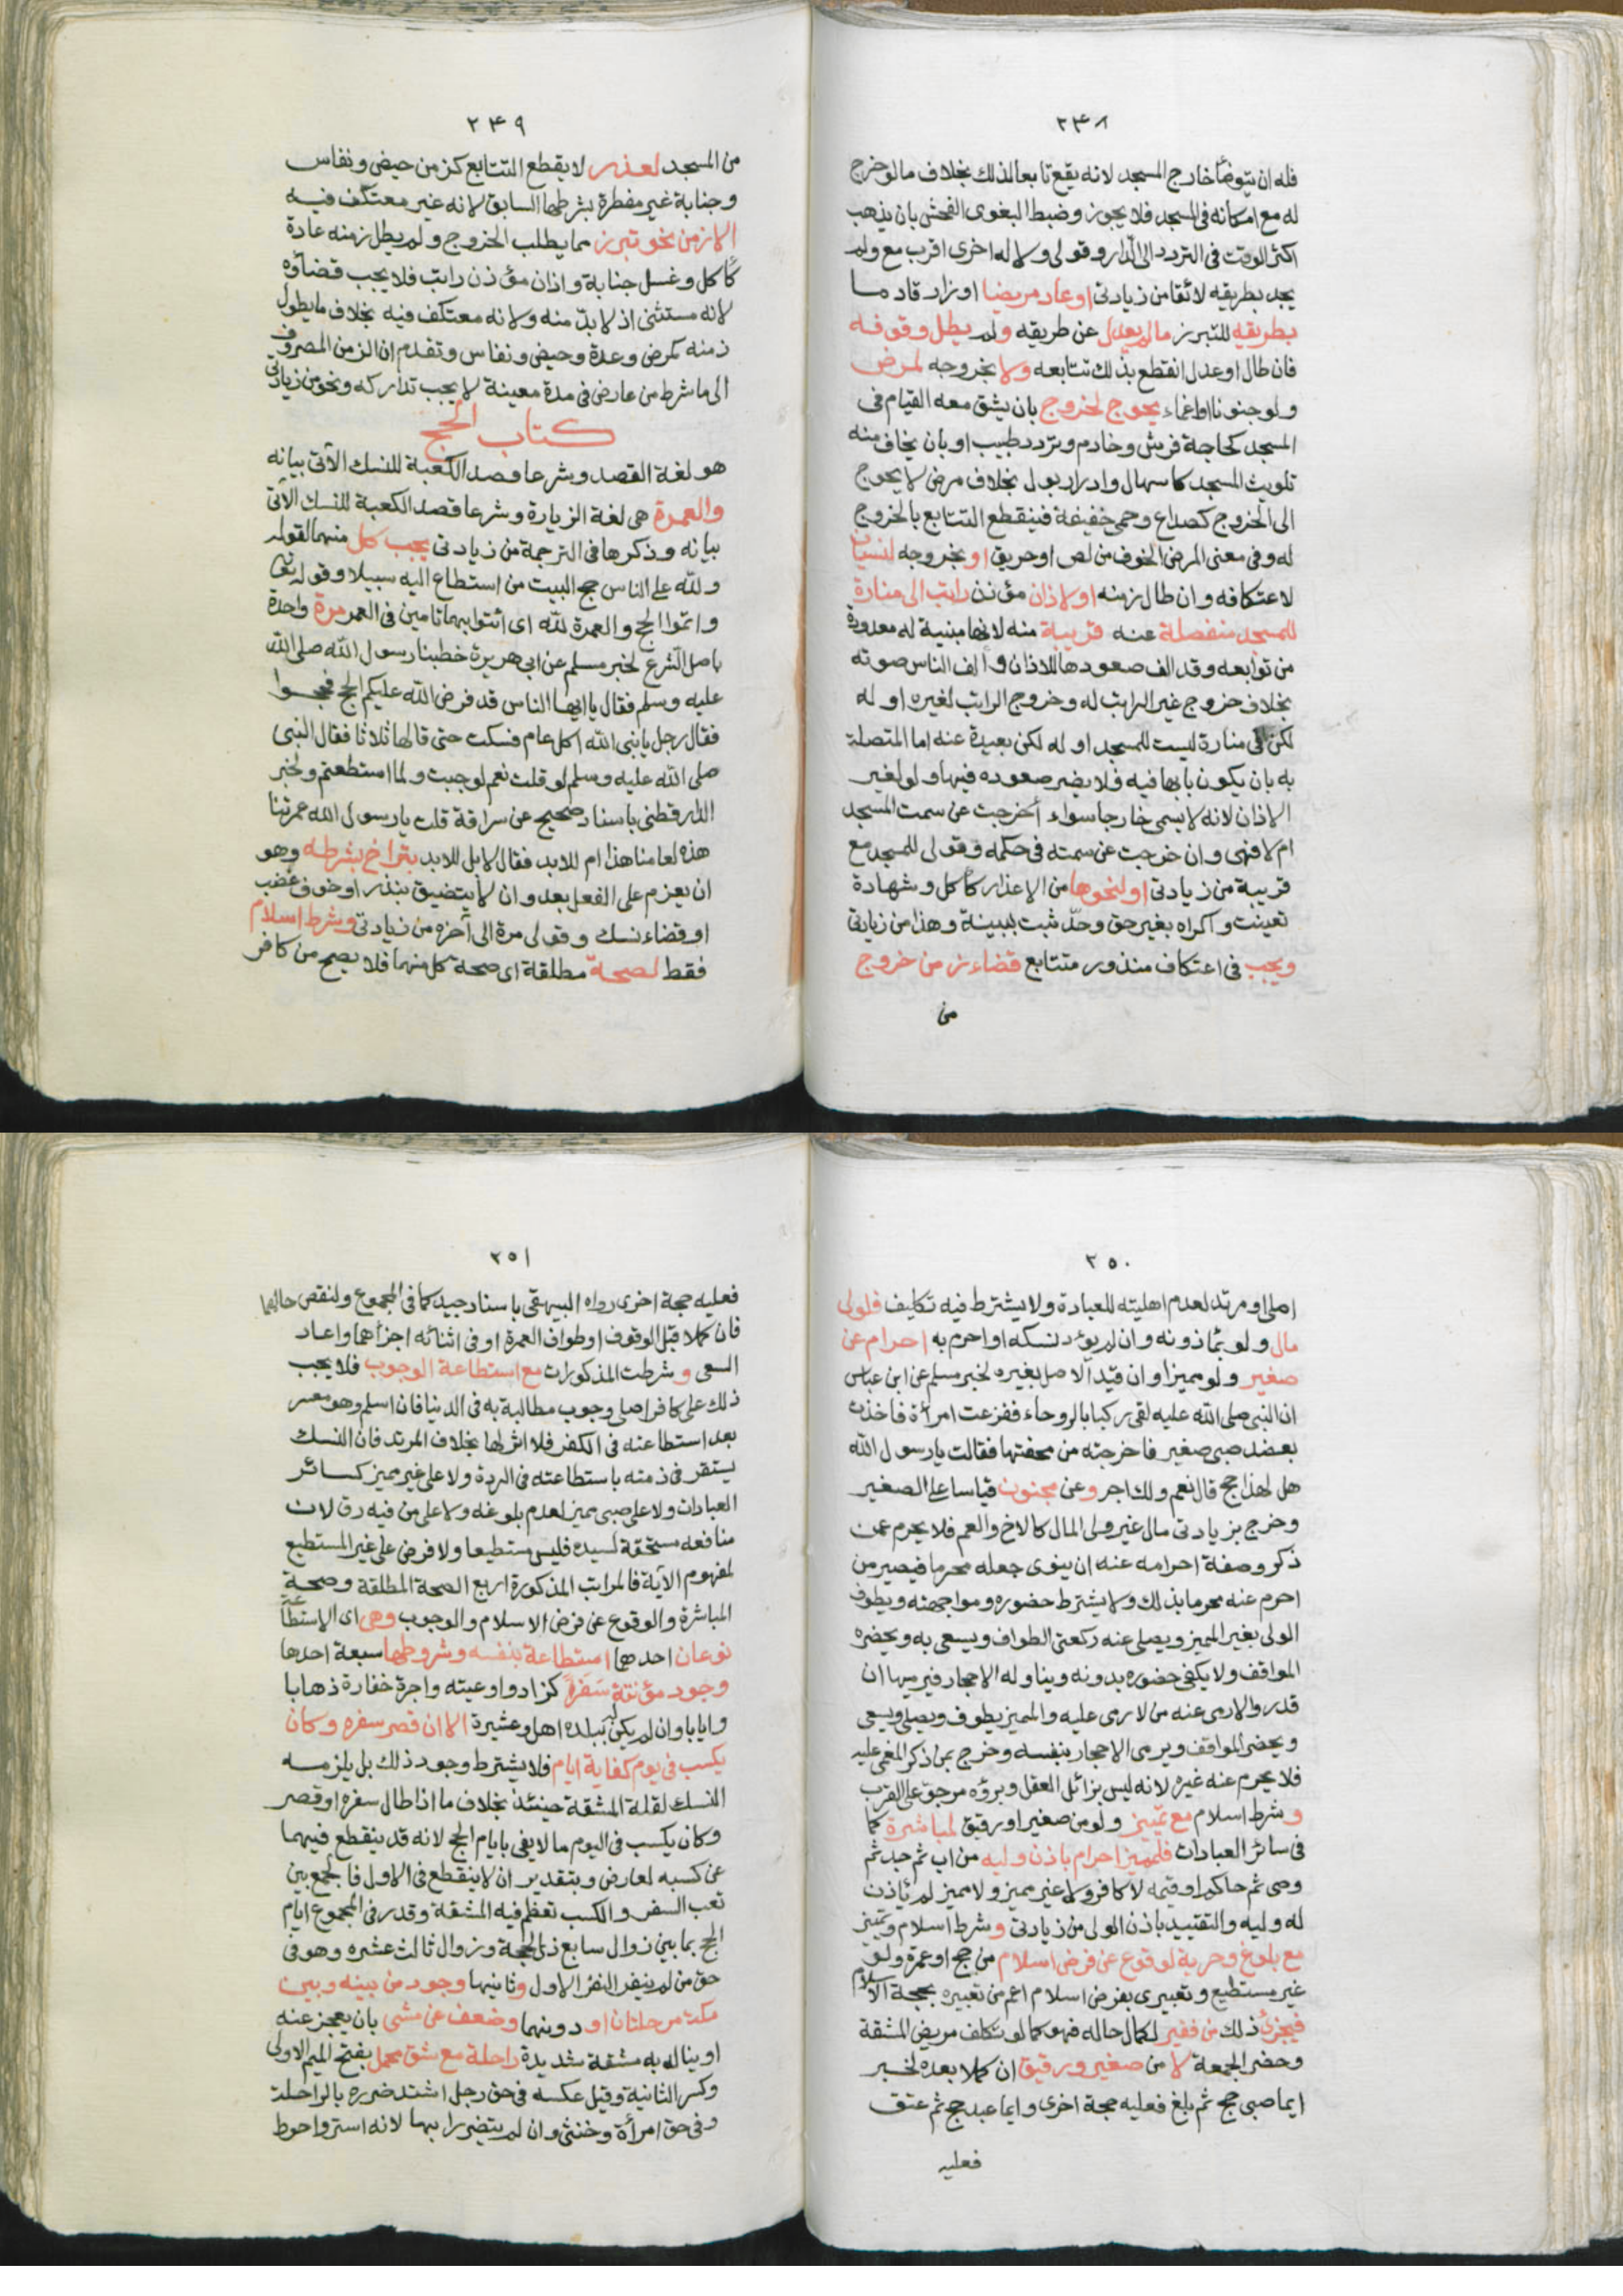 ٢٤٨
فله ان يتوضأ خارج المسجد لانه يقع تابعا لذلك بخلاف ما لو خرج
له مع امكانه فى المسجد فلا يجوز وضبط البغوى الفحش بان يذهب
اكثر الوقت فى التردد الى الدار وقولى ولا له اخرى اقرب مع ولم
يجد بطريقه لائقا من زيادتى او عاد مريضا او زار قادما
بطريقه للتبرز ما لم يعدل عن طريقه ولم يطل وقوفه
فان طال او عدل انقطع بذلك تتابعه ولا بخروجه لمرض
ولو جنونا او اغماء يحوج لخروج بان يشق معه القيام فى
المسجد لحاجة فرش وخادم وتردد طبيب او بان يخاف منه
تلويث المسجد كاسهال وادرار بول بخلاف مرض لا يحوج
الى الخروج كصداع وحمى خفيفة فينقطع التتابع بالخروج
له وفى معنى المرض الخوف من لص او حريق او بخروجه لنسيان
لاعتكافه وان طال زمنه او لاذان مؤذن راتب الى منارة
للمسجد منفصلة عنه قريبة منه لانها مبنية له معدودة
من توابعه وقد الف صعودها للاذان والف الناس صوته
بخلاف خروج غير الراتب له وخروج الراتب لغيره او له
لكن الى منارة ليست للمسجد او له لكن بعيدة عنه اما المتصلة
به بان يكون بابها فيه فلا يضر صعوده فيها ولو لغير
الاذان لانه لا يسمى خارجا سواء أخرجت عن سمت المسجد
ام لا فهى وان خرجت عن سمته فى حكمه وقولى للمسجد مع
قريبة من زيادتى او لنحوها من الاعذار كأكل وشهادة
تعينت واكراه بغير حق وحدّ ثبت ببينة وهذا من زيادتى
ويجب فى اعتكاف منذور متتابع قضاء زمن خروج
من
٢٤٩
من المسجد لعذر لا يقطع التتابع كزمن حيض ونفاس
وجنابة غير مفطرة بشرطها السابق لانه غير معتكف فيه
الا زمن نحو تبرز مما يطلب الخروج ولم يطل زمنه عادة
كأكل وغسل جنابة واذان مؤذن راتب فلا يجب قضاؤه
لانه مستثنى اذ لا بد منه ولانه معتكف فيه بخلاف ما يطول
زمنه كمرض وعدة وحيض ونفاس وتقدم ان الزمن المصروف
الى ما شرط من عارض فى مدة معينة لا يجب تداركه ونحو من زيادتى
كتاب الحج
هو لغة القصد وشرعا قصد الكعبة للنسك الآتى بيانه
والعمرة هى لغة الزيارة وشرعا قصد الكعبة للنسك الآتى
بيانه وذكرها فى الترجمة من زيادتى يجب كل منهما لقوله
ولله على الناس حج البيت من استطاع اليه سبيلا وقوله تعالى
واتموا الحج والعمرة لله اى ائتوا بهما تامين فى العمر مرة واحدة
باصل الشرع لخبر مسلم عن ابى هريرة خطبنا رسول الله صلى الله
عليه وسلم فقال يا ايها الناس قد فرض الله عليكم الحج فحجوا
فقال رجل يا نبى الله اكل عام فسكت حتى قالها ثلاثا فقال النبى
صلى الله عليه وسلم لو قلت نعم لوجبت ولما استطعتم ولخبر
الدارقطنى باسناد صحيح عن سراقة قلت يا رسول الله عمرتنا
هذه لعامنا هذا ام للابد فقال لا بل للابد بتراخ بشرطه وهو
ان يعزم على الفعل بعد وان لا يتضيق بنذر او خوف عضب
او قضاء نسك وقولى مرة الى آخره من زيادتى وشرط اسلام
فقط لصحة مطلقة اى صحة كل منهما فلا يصح من كافر
٢٥٠
اصلى او مرتد لعدم اهليته للعبادة ولا يشترط فيه تكليف فلولى
مال ولو بمأذونه وان لم يؤد نسكه او احرم به احرام عن
صغير ولو مميزا وان قيد الاصل بغيره لخبر مسلم عن ابن عباس
ان النبى صلى الله عليه لقى ركبا بالروحاء ففزعت امرأة فاخذت
بعضد صبى صغير فاخرجته من محفتها فقالت يا رسول الله
هل لهذا حج قال نعم ولك اجر وعن مجنون قياسا على الصغير
وخرج بزيادتى مال غير ولى المال كالاخ والعم فلا يحرم عمن
ذكر وصفة احرامه عنه ان ينوى جعله محرما فيصير من
احرم عنه محرما بذلك ولا يشترط حضوره ومواجهته ويطوف
الولى بغير المميز ويصلى عنه ركعتى الطواف ويسعى به ويحضره
المواقف ولا يكفى حضوره بدونه ويناوله الاحجار فيرميها ان
قدر والا رمى عنه من لا رمى عليه والمميز يطوف ويصلى ويسعى
ويحضر المواقف ويرمى الاحجار بنفسه وخرج بمن ذكر المغمى عليه
فلا يحرم عنه غيره لانه ليس بزائل العقل وبرؤه مرجو على القرب
وشرط اسلام مع تمييز ولو من صغير او رقيق لمباشرة كما
فى سائر العبادات فلمميز احرام باذن وليه من اب ثم جد ثم
وصى ثم حاكم او قيمه لا كافر ولا غير مميز ولا مميز لم يأذن
له وليه والتقييد باذن الولى من زيادتى وشرط اسلام وتمييز
مع بلوغ وحرية لوقوع عن فرض اسلام من حج او عمرة ولو
غير مستطيع وتعبيرى بفرض اسلام اعم من تعبيره بحجة الاسلام
فيجزئ ذلك من فقير لكمال حاله فهو كما لو تكلف مريض المشقة
وحضر الجمعة لا من صغير ورقيق ان كملا بعده لخبر
ايما صبى حج ثم بلغ فعليه حجة اخرى وايما عبد حج ثم عتق
فعليه
٢٥١
فعليه حجة اخرى رواه البيهقى باسناد جيد كما فى المجموع ولنقص حالهما
فان كملا قبل الوقوف او طواف العمرة او فى اثنائه اجزأهما واعاد
السعى وشرطت المذكورات مع استطاعة الوجوب فلا يجب
ذلك على كافر اصلى وجوب مطالبة به فى الدنيا فان اسلم وهو معسر
بعد استطاعته فى الكفر فلا اثر لها بخلاف المرتد فان النسك
يستقر فى ذمته باستطاعته فى الردة ولا على غير مميز كسائر
العبادات ولا على صبى مميز لعدم بلوغه ولا على من فيه رق لان
منافعه مستحقة لسيده فليس مستطيعا ولا فرض على غير المستطيع
لمفهوم الآية فالمراتب المذكورة اربع الصحة المطلقة وصحة
المباشرة والوقوع عن فرض الاسلام والوجوب وهى اى الاستطاعة
نوعان احدهما استطاعة بنفسه وشروطها سبعة احدها
وجود مؤنة سفره كزاد واوعيته واجرة خفارة ذهابا
وايابا وان لم يكن له ببلده اهل وعشيرة الا ان قصر سفره وكان
يكسب فى يوم كفاية ايام فلا يشترط وجود ذلك بل يلزمه
النسك لقلة المشقة حينئذ بخلاف ما اذا طال سفره او قصر
وكان يكسب فى اليوم ما لا يفى بايام الحج لانه قد ينقطع فيهما
عن كسبه لعارض وبتقدير ان لا ينقطع فى الاول فالجمع بين
تعب السفر والكسب تعظم فيه المشقة وقدر فى المجموع ايام
الحج بما بين زوال سابع ذى الحجة وزوال ثالث عشره وهو فى
حق من لم ينفر النفر الاول وثانيها وجود من بينه وبين
مكة مرحلتان او دونهما وضعف عن مشى بان يعجز عنه
او يناله به مشقة شديدة راحلة مع شق محمل بفتح الميم الاولى
وكسر الثانية وقيل عكسه فى حق رجل اشتد ضرره بالراحلة
وفى حق امرأة وخنثى وان لم يتضررا بها لانه استر واحوط